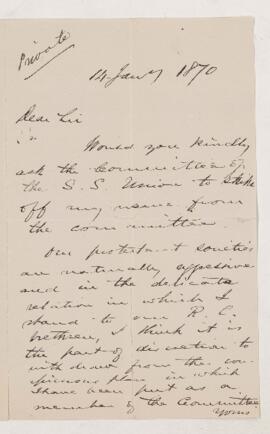 Private
14 Jany 1870
Dear Sir
Would you kindly
ask the Committee of
the S. S. Union to strike
off my name from
the committee
Our protestant societies
are naturally aggressive
and in the delicate
relation in which I
stand to our R. C.
brethren, I think it is
the part of discretion to
withdraw from the con-
spicuous place in which
I have been put as a
member of the Committee
Yours